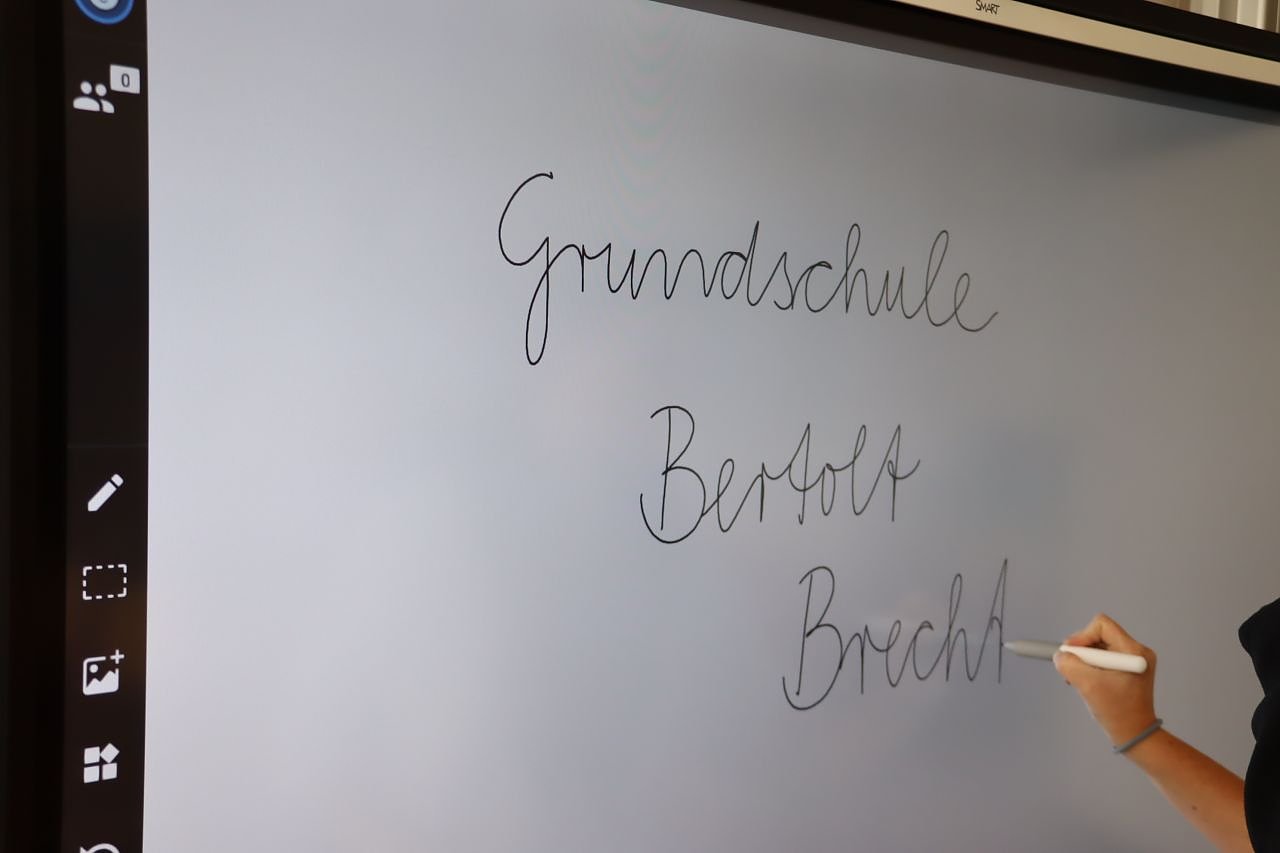 SMART
0
Grundschule
Bertolt
Brecht